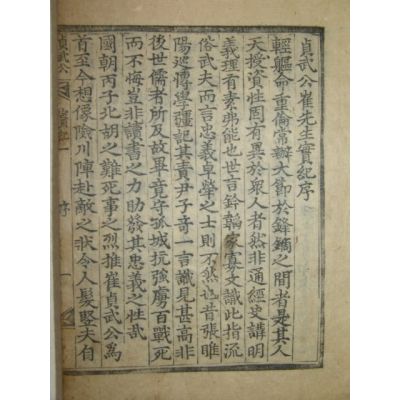 貞武公崔先生實紀序
輕軀命重倫常辦大節於鋒鏑之間者是其人
天投資性固有異於衆人者然非通經史講明
義理有素弗能也世言鈐韜家寡文識此指流
俗武夫而言忠義卓犖之士則不然也昔張睢
陽巡博學彊記其責尹子奇一言識見甚高非
後世儒者所及故畢竟守孤城抗強虜百戰死
而不悔豈非讀書之力助發其忠義之性哉
國朝丙子北胡之難死事之烈推崔貞武公爲
首至今想像險川陣赴敵之狀令人髮竪夫自
貞武公
實紀一
序
一